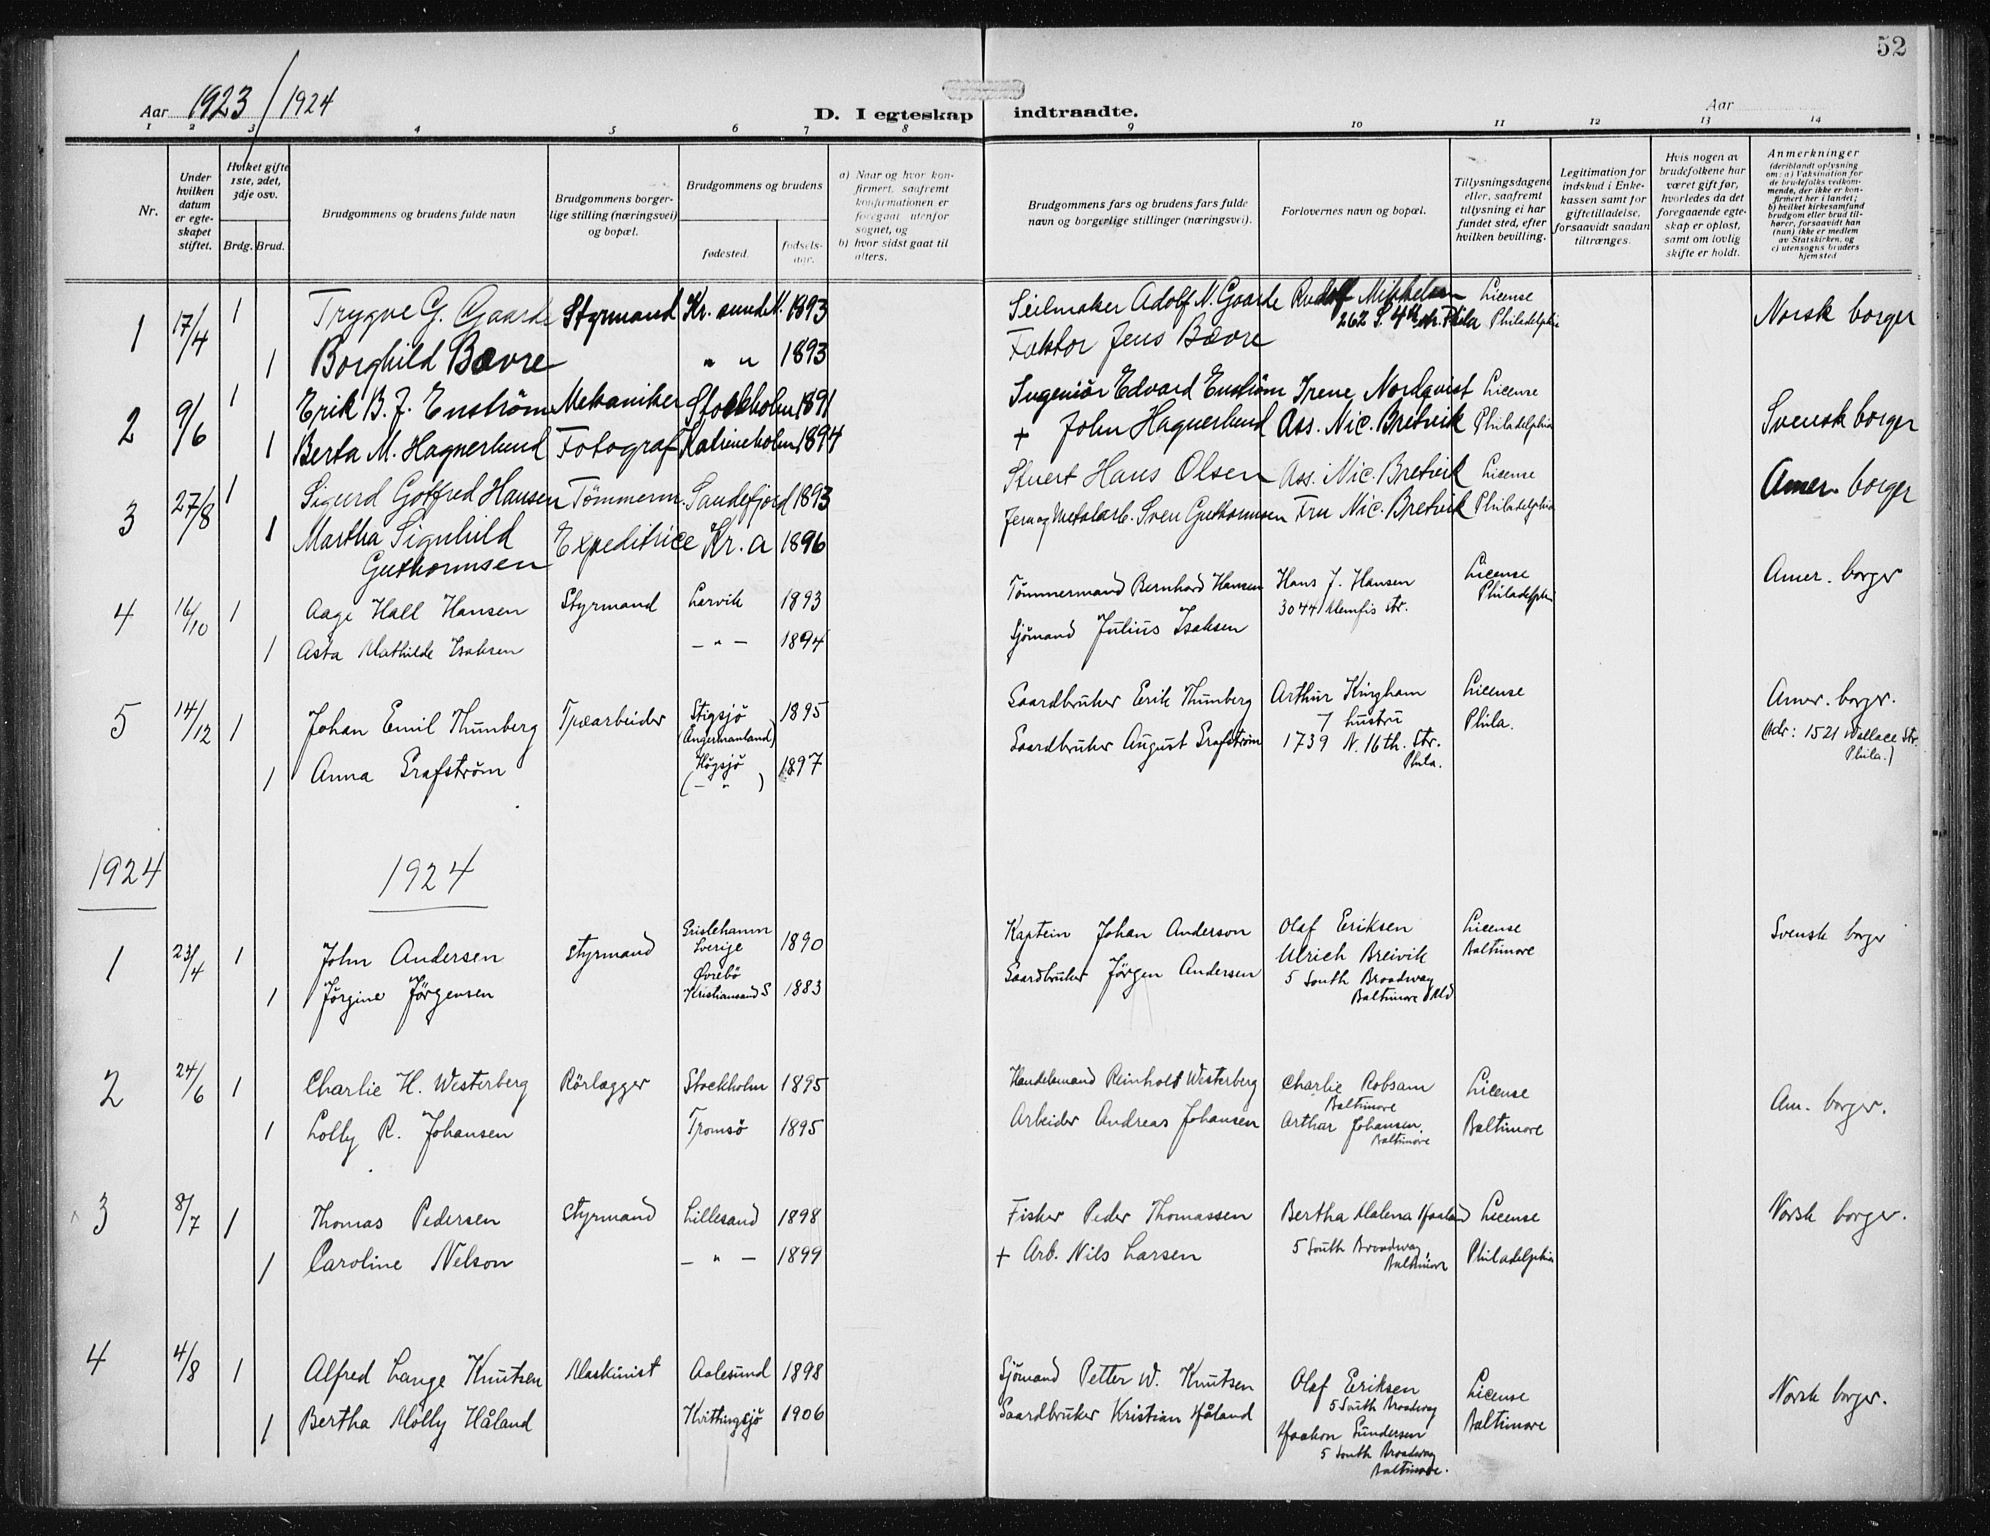 52
Aar 1923 / 1924
D. I egteskap indtraadte.
Aar
1 2 3 4 5 6 7 8 9 10 11 12 13 14
Nr.
Under hvilken datum er egteskapet stiftet.
Hvilket gifte 1ste, 2det, 3dje osv.
Brdg. Brud.
Brudgommens og brudens fulde navn
Brudgommens borgerlige stilling (næringsvei) og bopæl.
Brudgommens og brudens
fødested. fødselsaar.
a) Naar og hvor konfirmert, saafremt konfirmationen er foregaat utenfor sognet, og
b) hvor sidst gaat til alters.
Brudgommens fars og brudens fars fulde navn og borgerlige stillinger (næringsvei).
Forlovernes navn og bopæl.
Tillysningsdagene eller, saafremt tillysning ei har fundet sted, efter hvilken bevilling.
Legitimation for indskud i Enkekassen samt for giftetilladelse, forsaavidt saadan tiltrænges.
Hvis nogen av brudefolkene har været gift før, hvorledes da det foregaaende egteskap er opløst, samt om lovlig skifte er holdt.
Anmerkninger (deriblandt oplysning om: a) Vaksination for de brudefolks vedkommende, der ikke er konfirmert her i landet; b) hvilket kirkesamfund brudgom eller brud tilhører, forsaavidt han (hun) ikke er medlem av Statskirken, og c) utensogns bruders hjemsted
1 17/4 1 Trygve G. Gaarde Styrmand Kr. sund N. 1893 Seilmaker Adolf N. Gaarde Rudolf Mikkelsen License Norsk borger
262 S. 4th str. Phila Philadelphia
1 Borghild Bævre " " 1893 Faktor Jens Bævre
2 9/6 1 Erik B. J. Enström Mekaniker Stockholm 1891 Ingeniör Edvard Enström Irene Nordqvist License Svensk borger
1 Berta M. Hagnerlund Fotograf Katrineholm 1894 + John Hagnerlund Ass. Nic. Bretvik Philadelphia
3 27/8 1 Sigurd Gotfred Hansen Tömmerm. Sandefjord 1893 Stuert Hans Olsen Ass. Nic. Bretvik License Amer. borger
1 Martha Signhild Guthormsen Expeditrice Kr.a 1896 Jern og Metalarb. Sven Guthormsen Fru Nic. Bretvik Philadelphia
4 16/10 1 Aage Hall Hansen Styrmand Larvik 1893 Tömmermand Bernhard Hansen Hans J. Hansen License Amer. borger
3044 Memfis str. Philadelphi
1 Asta Mathilde Isaksen – " – 1894 Sjömand Julius Isaksen
5 14/12 1 Johan Emil Thunberg Træarbeider Stigsjö 1895 Gaardbruker Erik Thunberg Arthur Kingham License Amer. borger.
(Angermanland) / hustru Phila. (Adr: 1521 Wallace Str.
1 Anna Grafström Högsjö 1897 Gaardbruker August Grafström 1739 N. 16th. Str. Phila. Phila.)
( – " )
1924 1924
1 23/4 1 John Andersen Styrmand Grislehamn Sverige 1890 Kaptein Johan Anderson Olaf Eriksen License Svensk borger
Ulrich Breivik Baltimore
1 Jörgine Jörgensen Øvrebö Kristiansand S 1883 Gaardbruker Jörgen Andersen 5 South Broadway Baltimore Md
2 24/6 1 Charlie H. Westerberg Rörlægger Stockholm 1895 Handelsmand Reinholt Westerberg Charlie Robsam Baltimore License Am. borger.
1 Lolly R. Johansen Tromsö 1895 Arbeider Andreas Johansen Arthur Johansen, Baltimore Baltimore
3 8/7 1 Thomas Pedersen Styrmand Lillesand 1898 Fisker Peder Thomassen Bertha Malena Haaland License Norsk borger.
1 Caroline Nelson – " – 1899 + Arb. Nils Larsen 5 South Broadway, Baltimore Philadelphia
4 4/8 1 Alfred Lange Knutsen Maskinist Aalesund 1898 Sjömand Petter W. Knutsen Olaf Eriksen License Norsk borger.
5 South Broadway
1 Bertha Molly Håland Kvittingsjö 1906 Gaardbruker Kristian Håland Haakon Gundersen Baltimore
5 South Broadway
Baltimore.